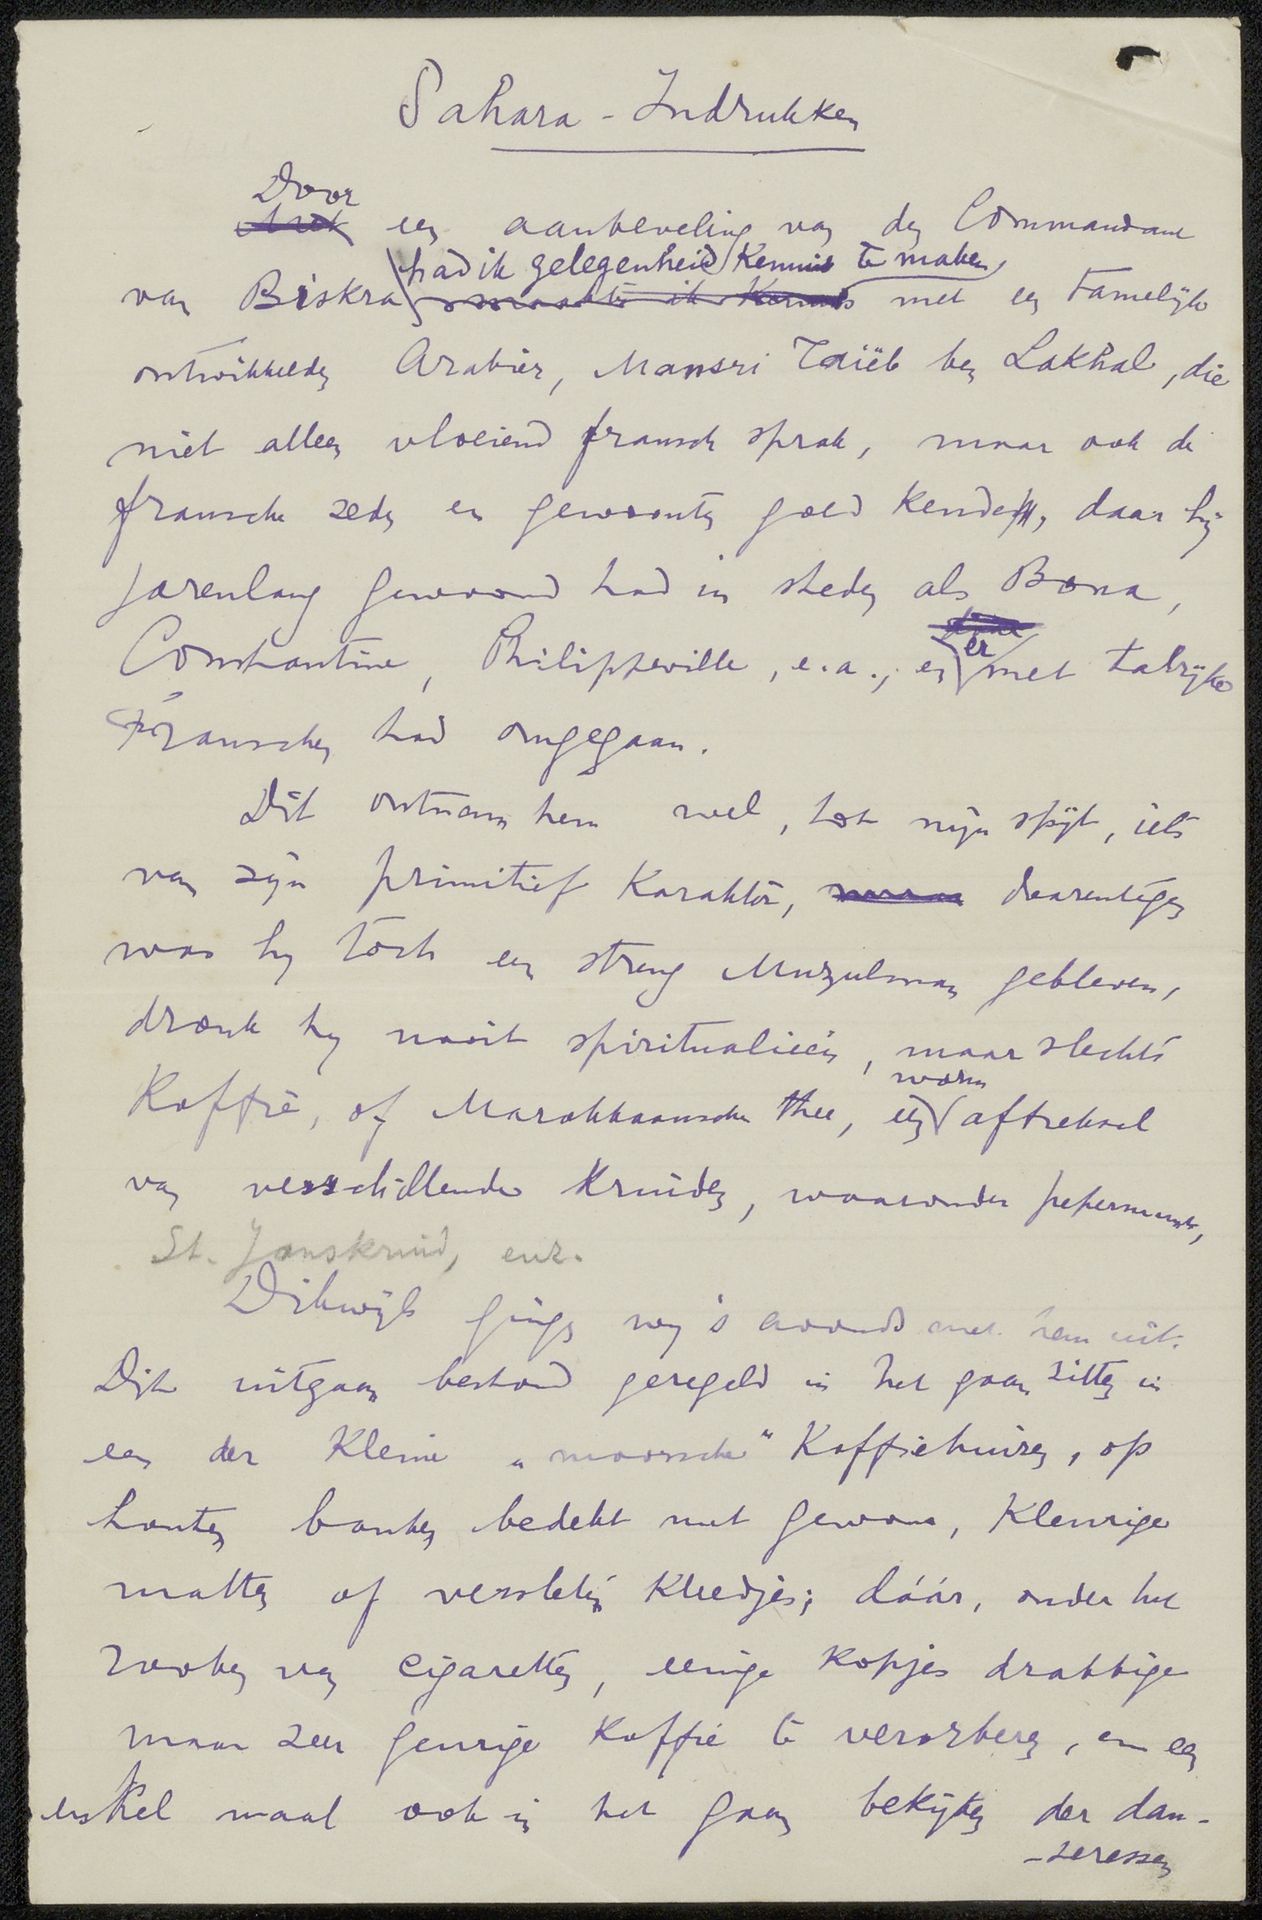 Sahara - Indrukken
Door
een aanbeveling van den Commandant
had ik gelegenheid kennis te maken
van Biskra maakte ik kennis met een tamelijk
ontwikkelden Arabier, Mansri Taïëb ben Lakhal, die
niet alleen vloeiend fransch sprak, maar ook de
fransche zeden en gewoonten goed kende, daar hij
jarenlang gewoond had in steden als Bona,
er
Constantine, Philippeville, e.a., en met talrijke
Franschen had omgegaan.
Dit ontnam hem wel, tot mijn spijt, iets
van zijn primitief karakter, daarentegen
was hij toch een streng Muzulman gebleven,
dronk hij nooit spiritualiën, maar slechts
warm
Koffie, of Marokkaansche thee, een aftreksel
van verschillende kruiden, waaronder pepermunt,
St. Janskruid, enz.
Dikwijls gingen wij 's avonds met hem uit.
Dit uitgaan bestond geregeld in het gaan zitten in
een der kleine „moorsche" koffiehuizen, op
houten banken bedekt met gewone, kleurige
matten of versleten kleedjes; dáár, onder het
rooken van cigaretten, eenige kopjes drabbige
maar zeer geurige koffie te verorberen, en een
enkel maal ook in het gaan bekijken der dan-
-seressen